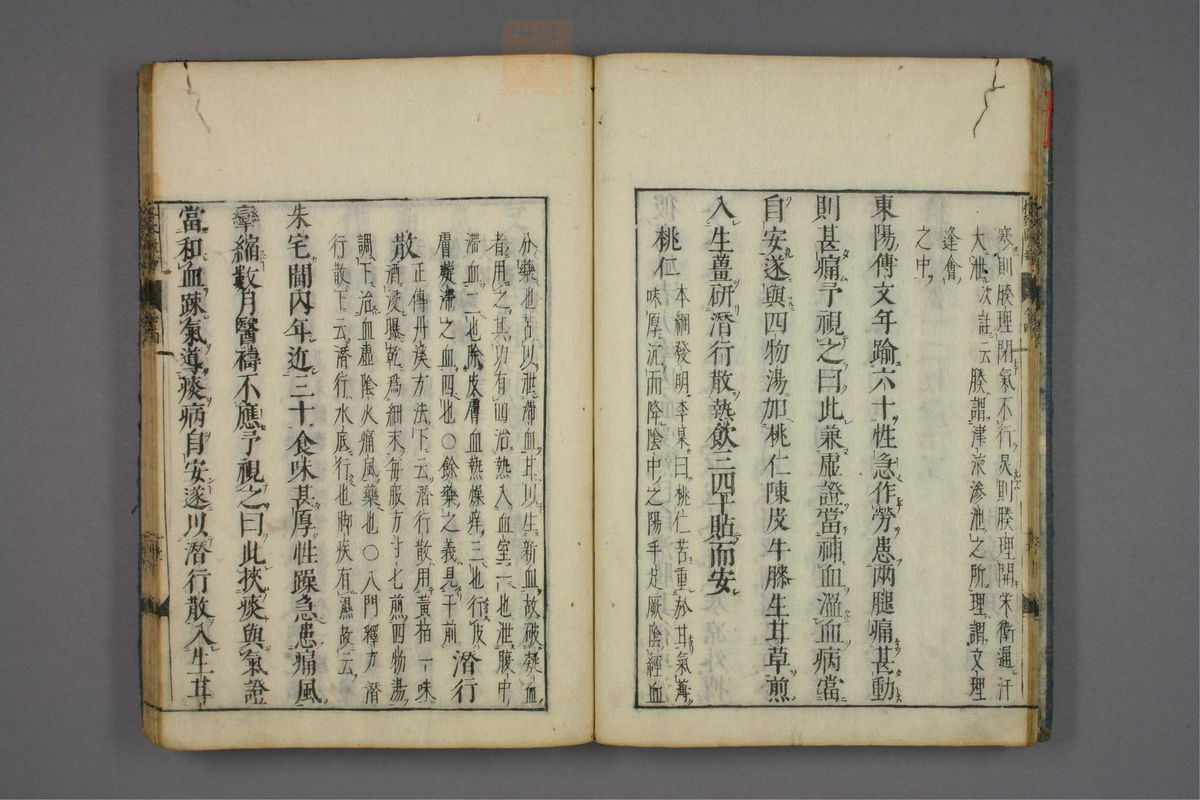 寒則腠理閉氣不行炅則腠理開榮衛通汗
大泄次註云腠謂津液滲泄之所理謂文理
逢會
之中
東陽傳文年踰六十性急作勞患兩腿痛甚動
則甚痛予視之曰此兼虛證當補血溫血病當
自安遂與四物湯加桃仁陳皮牛膝生甘草煎
入生薑研潛行散熱飲三四十貼而安
桃仁 本綱發明李杲曰桃仁苦重於甘氣薄
味厚沉而降陰中之陽手足厥陰經血
分藥也苦以泄滯血甘以生新血故破凝血
者用之其功有四治熱入血室一也泄腹中
滯血二也除皮膚血熱燥痒三也行皮
膚凝滯之血四也○餘藥之義見于前
潛行
散 正傳丹溪方法下云潛行散用黃栢一味
酒浸曝乾為細末每服方寸匕煎四物湯
調下治血虛陰火痛風藥也○八門釋方潛
行散下云潛行水底行也脚疾有濕故云
朱宅閫內年近三十食味甚厚性躁急患痛風
攣縮數月醫禱不應予視之曰此挾痰與氣證
當和血疎氣導痰病自安遂以潛行散入生甘